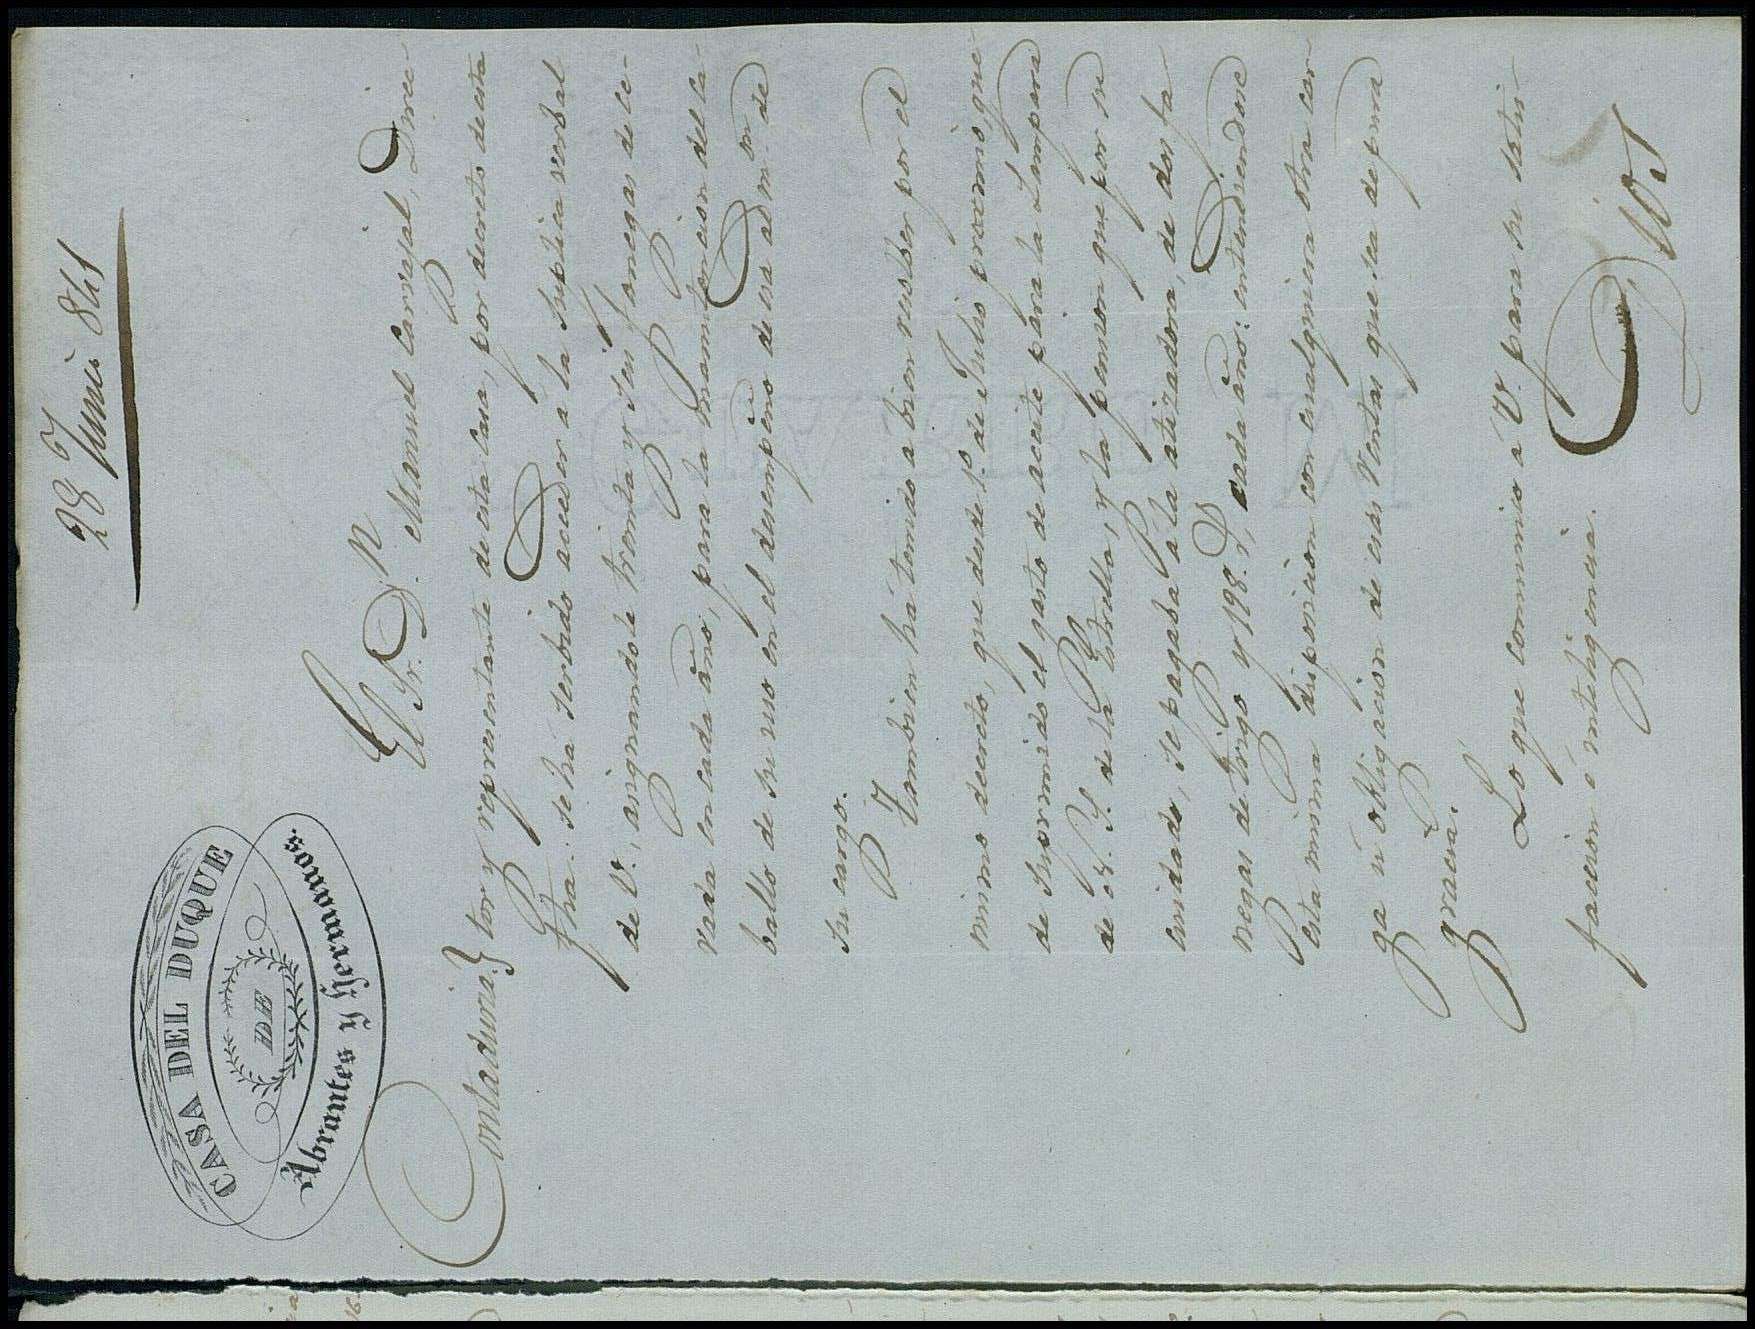 28 Junio 841
CASA DEL DUQUE
DE
Abrantes y Hermanos.
Contaduria.
El Sr. D. N. Manuel Carvajal, Direc-
tor y representante de esta Casa, por decreto de esta
fha. se ha servido acceder a la suplica verbal
de V., asignandole treinta y seis fanegas de ce-
vada en cada año, para la manutencion del ca-
ballo de su uso en el desempeño de esa adm.on de
su cargo.
Tambien ha tomado a bien resolver por el
mismo decreto, que desde 1.o de Julio proximo que-
de suprimido el gasto de aceite para la Lampara
de N. S. de la Estrella, y la pension que por su
cuidado, se pagaba a la atizadora, de dos fa-
negas de trigo y 128. r.s cada año: entendiendose
esta misma disposicion con cualquiera otra car-
ga u obligacion de esas Rentas que sea de pura
gracia.
Lo que comunico a V. para su satis-
faccion é inteligencia.
Dios